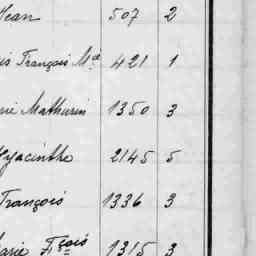 Jean 507 2
is François Md 421 1
rie Mathurin 1350 3
Hyacinthe 2145 5
François 1336 3
arie Fçois 1315 3